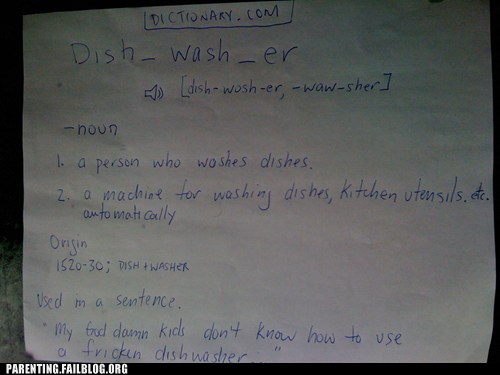 DICTIONARY.COM
Dish_ wash_er
[dish-wosh-er, -waw-sher]
-noun
1. a person who washes dishes.
2. a machine for washing dishes, kitchen utensils. etc.
automatically
Origin
1520-30; DISH + WASHER
Used in a sentence.
"My God damn kids don't know how to use
a fricken dishwasher..."
PARENTING.FAILBLOG.ORG